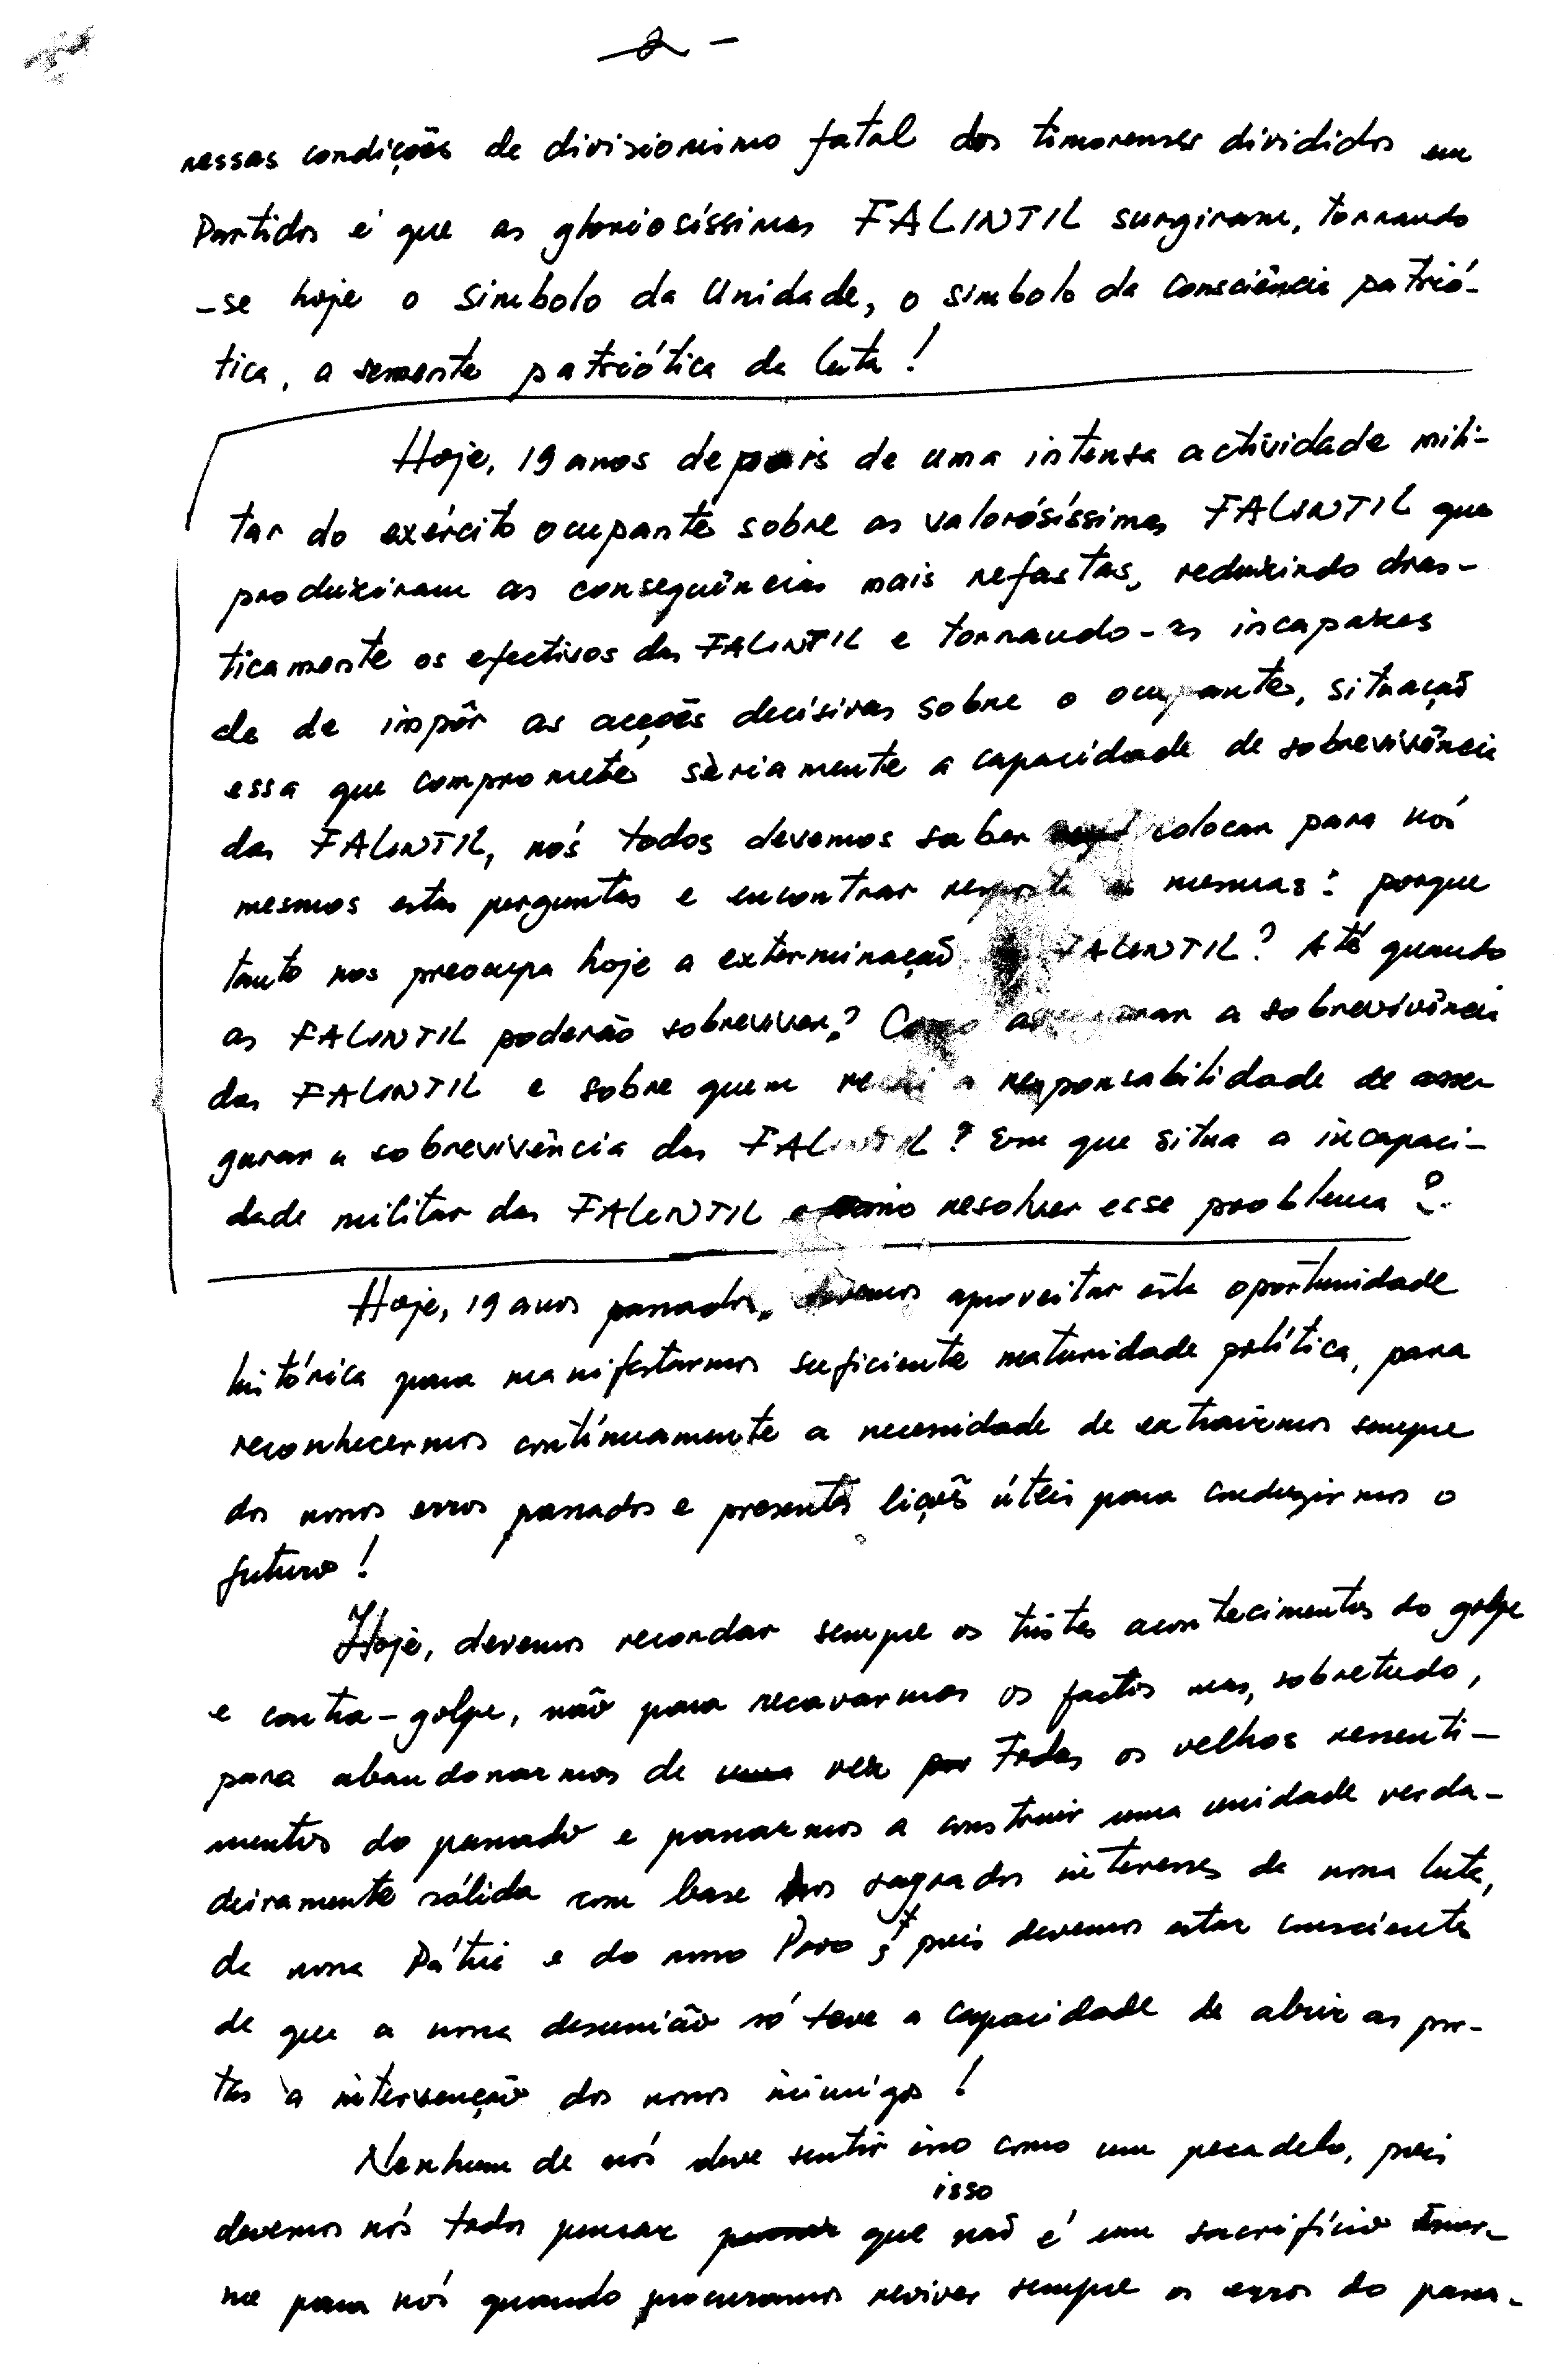 2 -
nessas condições de divisionismo fatal dos timorenses divididos em
Partidos é que as gloriosíssimas FALINTIL surgiram, tornando
-se hoje o simbolo da Unidade, o simbolo da consciência patrió-
tica, a semente patriótica da luta!
Hoje, 19 anos depois de uma intensa actividade mili-
tar do exército ocupante sobre as valorósíssimas FALINTIL que
produziram as consequências mais nefastas, reduzindo dras-
ticamente os efectivos das FALINTIL e tornando-as incapazes
de de impôr as acções decisivas sobre o ocupante, situação
essa que compromete sèriamente a capacidade de sobrevivência
das FALINTIL, nós todos devemos saber colocar para nós
mesmos estas perguntas e encontrar resposta às mesmas: porque
tanto nos preocupa hoje a exterminação FALINTIL? Até quando
as FALINTIL poderão sobreviver? Como assegurar a sobrevivência
das FALINTIL e sobre quem recai a responsabilidade de asse-
gurar a sobrevivência das FALINTIL? Em que situa a incapaci-
dade militar das FALINTIL e como resolver esse problema?
Hoje, 19 anos passados, devemos aproveitar esta oportunidade
histórica para manifestarmos suficiente maturidade política, para
reconhecermos contínuamente a necessidade de extrairmos sempre
dos nossos erros passados e presentes lições úteis para conduzirmos o
futuro!
Hoje, devemos recordar sempre os tristes acontecimentos do golpe
e contra-golpe, não para recavarmos os factos mas, sobretudo,
para abandonarmos de uma vez por todas os velhos ressenti-
mentos do passado e passarmos a construir uma unidade verda-
deiramente sólida com base nos sagrados interesses da nossa luta,
da nossa Pátria e do nosso Povo; pois devemos estar conscientes
de que a nossa desunião só teve a capacidade de abrir as por-
tas à intervenção dos nossos inimigos!
Nenhum de nós deve sentir isso como um pecadelo, pois
isso
devemos nós todos pensar que não é um sacrifício enor-
me para nós quando procuramos reviver sempre os erros do passa-